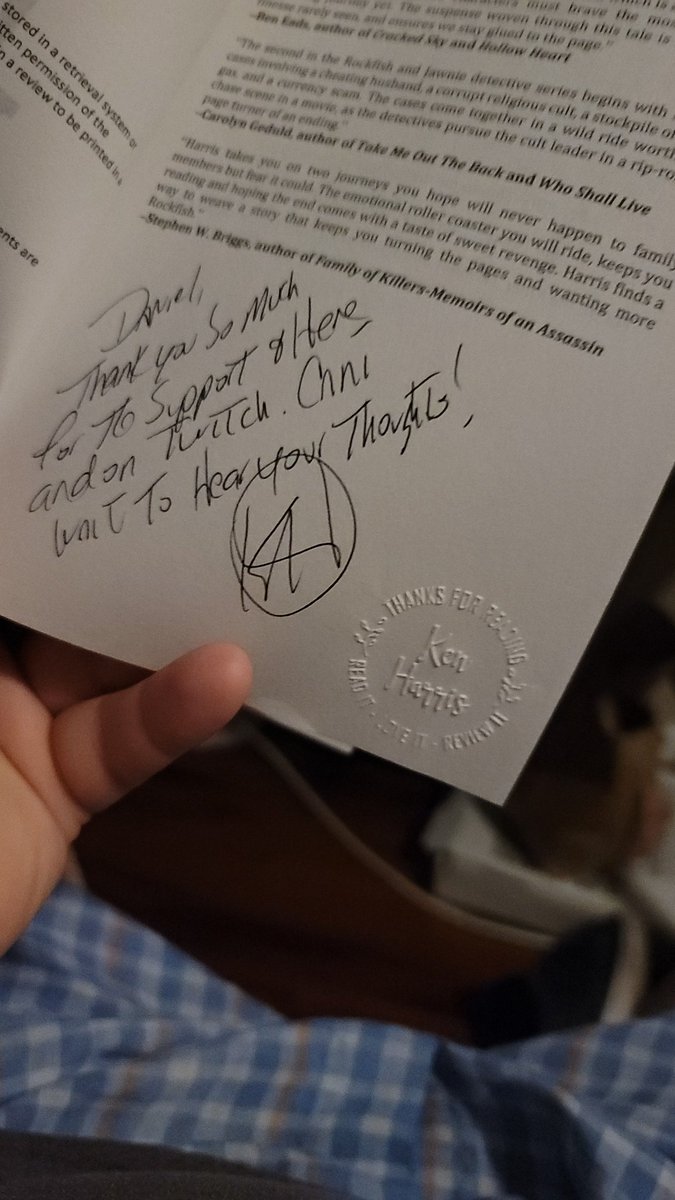 stored in a retrieval system or
itten permission of the
n a review to be printed in a
ents are
characters must brave the mos
journey yet. The suspense woven through this tale is
finesse rarely seen, and ensures we stay glued to the page."
–Ben Eads, author of Cracked Sky and Hollow Heart
"The second in the Rockfish and Jawnie detective series begins with
cases involving a cheating husband, a corrupt religious cult, a stockpile of
gas, and a currency scam. The cases come together in a wild ride worth
chase scene in a movie, as the detectives pursue the cult leader in a rip-ro
page turner of an ending."
–Carolyn Geduld, author of Take Me Out The Back and Who Shall Live
"Harris takes you on two journeys you hope will never happen to family
members but fear it could. The emotional roller coaster you will ride, keeps you
reading and hoping the end comes with a taste of sweet revenge. Harris finds a
way to weave a story that keeps you turning the pages and wanting more
Rockfish."
–Stephen W. Briggs, author of Family of Killers-Memoirs of an Assassin
Daniel,
Thank you So Much
for The Support of Here,
and on Twitch. Can't
Wait To Hear your Thoughts!
KH
THANKS FOR READING
Ken
Harris
READ IT - LOVE IT - REVIEW IT